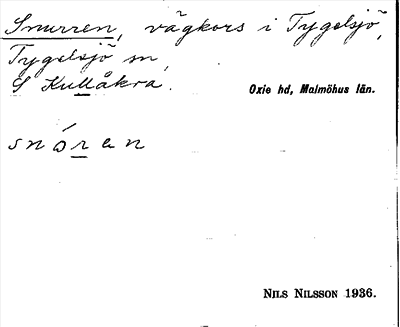 Snurren, vägkors i Tygelsjö,
Tygelsjö sn,
S Kullåkra.
Oxie hd, Malmöhus län.
snóren
NILS NILSSON 1936.